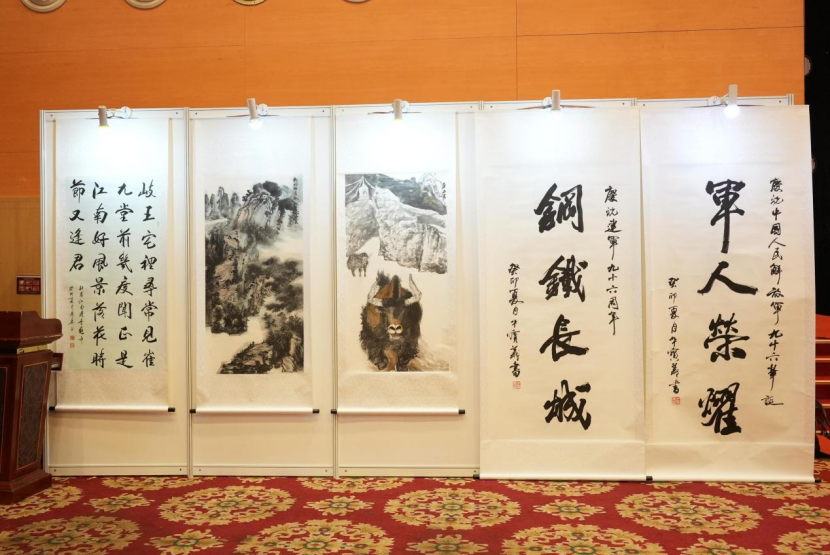 岐王宅裡尋常見崔
九堂前幾度聞正是
江南好風景落花時
節又逢君
慶祝建軍九十六周年
鋼鐵長城
癸卯夏月牛書
慶祝中國人民解放軍九十六華誕
軍人榮耀
癸卯夏月牛書